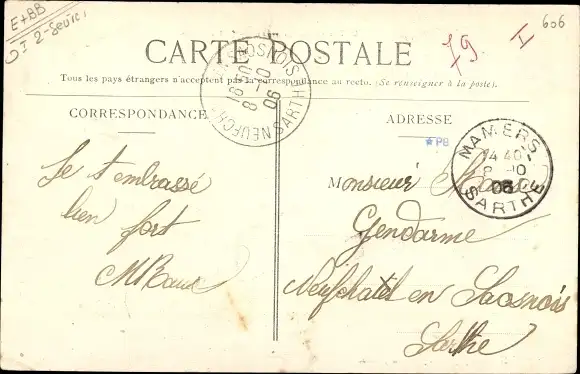 E+BB
DT 2-Sevres
79
I
606
CARTE POSTALE
Tous les pays étrangers n'acceptent pas la correspondance au recto. (Se renseigner à la poste).
CORRESPONDANCE
ADRESSE
Je t'embrasse
bien fort
Monsieur
Gendarme
Neufchatel en Saosnois
Sarthe
NEUFCH SAOSNOIS SARTHE
16 00
8 -10
06
MAMERS
14 40
8 -10
06
SARTHE
★PB